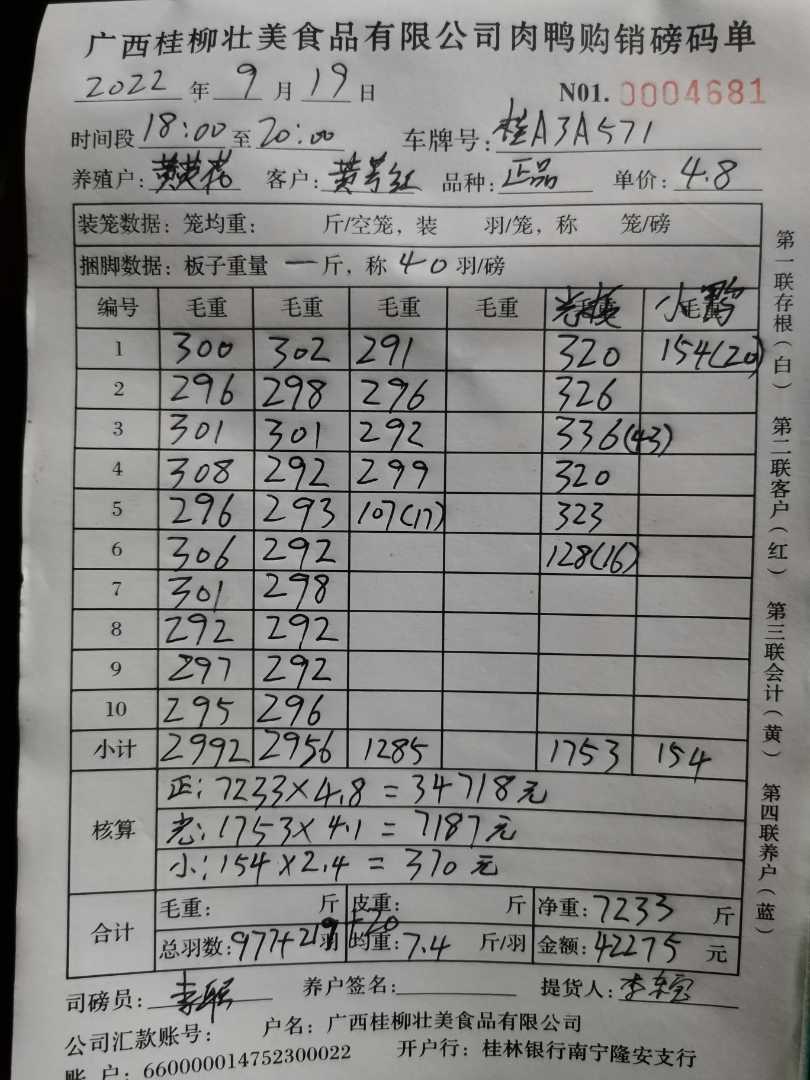 广西桂柳壮美食品有限公司肉鸭购销磅码单
2022 年 9 月 19 日 N01. 0004681
时间段 18:00 至 20:00 车牌号: 桂A3A571
养殖户: 黄英花 客户: 黄芳红 品种: 正品 单价: 4.8
装笼数据: 笼均重: 斤/空笼, 装 羽/笼, 称 笼/磅
捆脚数据: 板子重量 一 斤, 称 40 羽/磅
编号 毛重 毛重 毛重 毛重 小鸭
1 300 302 291 320 154(20)
2 296 298 296 326
3 301 301 292 336(43)
4 308 292 299 320
5 296 293 107(17) 323
6 306 292 128(16)
7 301 298
8 292 292
9 297 292
10 295 296
小计 2992 2956 1285 1753 154
核算 正: 7233×4.8=34718元
光: 1753×4.1=7187元
小: 154×2.4=370元
合计 毛重: 斤 皮重: 斤 净重: 7233 斤
总羽数: 977+219+20 羽 均重: 7.4 斤/羽 金额: 42275 元
司磅员: 养户签名: 提货人:
公司汇款账号: 户名: 广西桂柳壮美食品有限公司
账 户: 660000014752300022 开户行: 桂林银行南宁隆安支行
第一联存根(白) 第二联客户(红) 第三联会计(黄) 第四联养户(蓝)